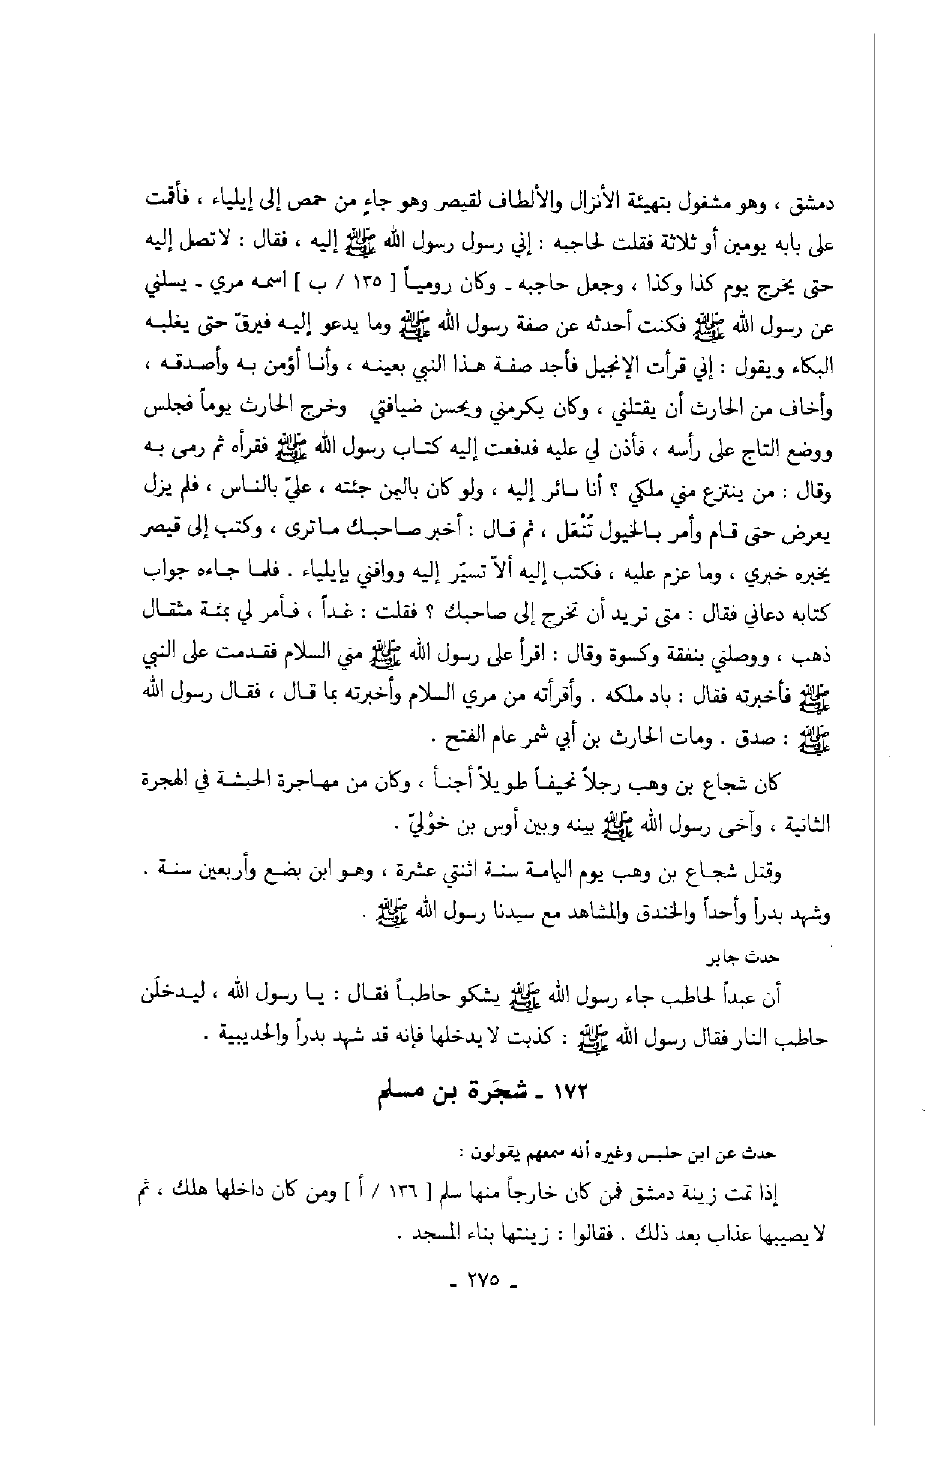 دمشق ، وهو مشغول بتهيئة الأنزال والألطاف لقيصر وهو جاءٍ من حمص إلى إيلياء ، فأقمت
على بابه يومين أو ثلاثة فقلت لحاجبه : إني رسول رسول الله ﷺ إليه ، فقال : لا تصل إليه
حتى يخرج يوم كذا وكذا ، وجعل حاجبه ـ وكان رومياً [ ١٣٥ / ب ] اسمه مري ـ يسلني
عن رسول الله ﷺ فكنت أحدثه عن صفة رسول الله ﷺ وما يدعو إليه فيرقّ حتى يغلبه
البكاء ويقول : إني قرأت الإنجيل فأجد صفة هذا النبي بعينه ، وأنا أؤمن به وأصدقه ،
وأخاف من الحارث أن يقتلني ، وكان يكرمني ويحسن ضيافتي وخرج الحارث يوماً فجلس
ووضع التاج على رأسه ، فأذن لي عليه فدفعت إليه كتاب رسول الله ﷺ فقرأه ثم رمى به
وقال : من ينتزع مني ملكي ؟ أنا سائر إليه ، ولو كان باليمن جئته ، عليّ بالناس ، فلم يزل
يعرض حتى قام وأمر بالخيول تُنْعَل ، ثم قال : أخبر صاحبك ما ترى ، وكتب إلى قيصر
يخبره خبري ، وما عزم عليه ، فكتب إليه ألاّ تسيّر إليه ووافني بإيلياء . فلما جاءه جواب
كتابه دعاني فقال : متى تريد أن تخرج إلى صاحبك ؟ فقلت : غداً ، فأمر لي بمئة مثقال
ذهب ، ووصلني بنفقة وكسوة وقال : اقرأ على رسول الله ﷺ مني السلام فقدمت على النبي
ﷺ فأخبرته فقال : باد ملكه . وأقرأته من مري السلام وأخبرته بما قال ، فقال رسول الله
ﷺ : صدق . ومات الحارث بن أبي شمر عام الفتح .
كان شجاع بن وهب رجلاً نحيفاً طويلاً أجنأ ، وكان من مهاجرة الحبشة في الهجرة
الثانية ، وآخى رسول الله ﷺ بينه وبين أوس بن خوْليّ .
وقتل شجاع بن وهب يوم اليمامة سنة اثنتي عشرة ، وهو ابن بضع وأربعين سنة .
وشهد بدراً وأحداً والخندق والمشاهد مع سيدنا رسول الله ﷺ .
حدث جابر
أن عبداً لحاطب جاء رسول الله ﷺ يشكو حاطباً فقال : يا رسول الله ، ليدخلَن
حاطب النار فقال رسول الله ﷺ : كذبت لا يدخلها فإنه قد شهد بدراً والحديبية .
١٧٢ ـ شجَرة بن مسلم
حدث عن ابن حلبس وغيره أنه سمعهم يقولون :
إذا تمت زينة دمشق فمن كان خارجاً منها سلم [ ١٣٦ / أ ] ومن كان داخلها هلك ، ثم
لا يصيبها عذاب بعد ذلك . فقالوا : زينتها بناء المسجد .
ـ ٢٧٥ ـ